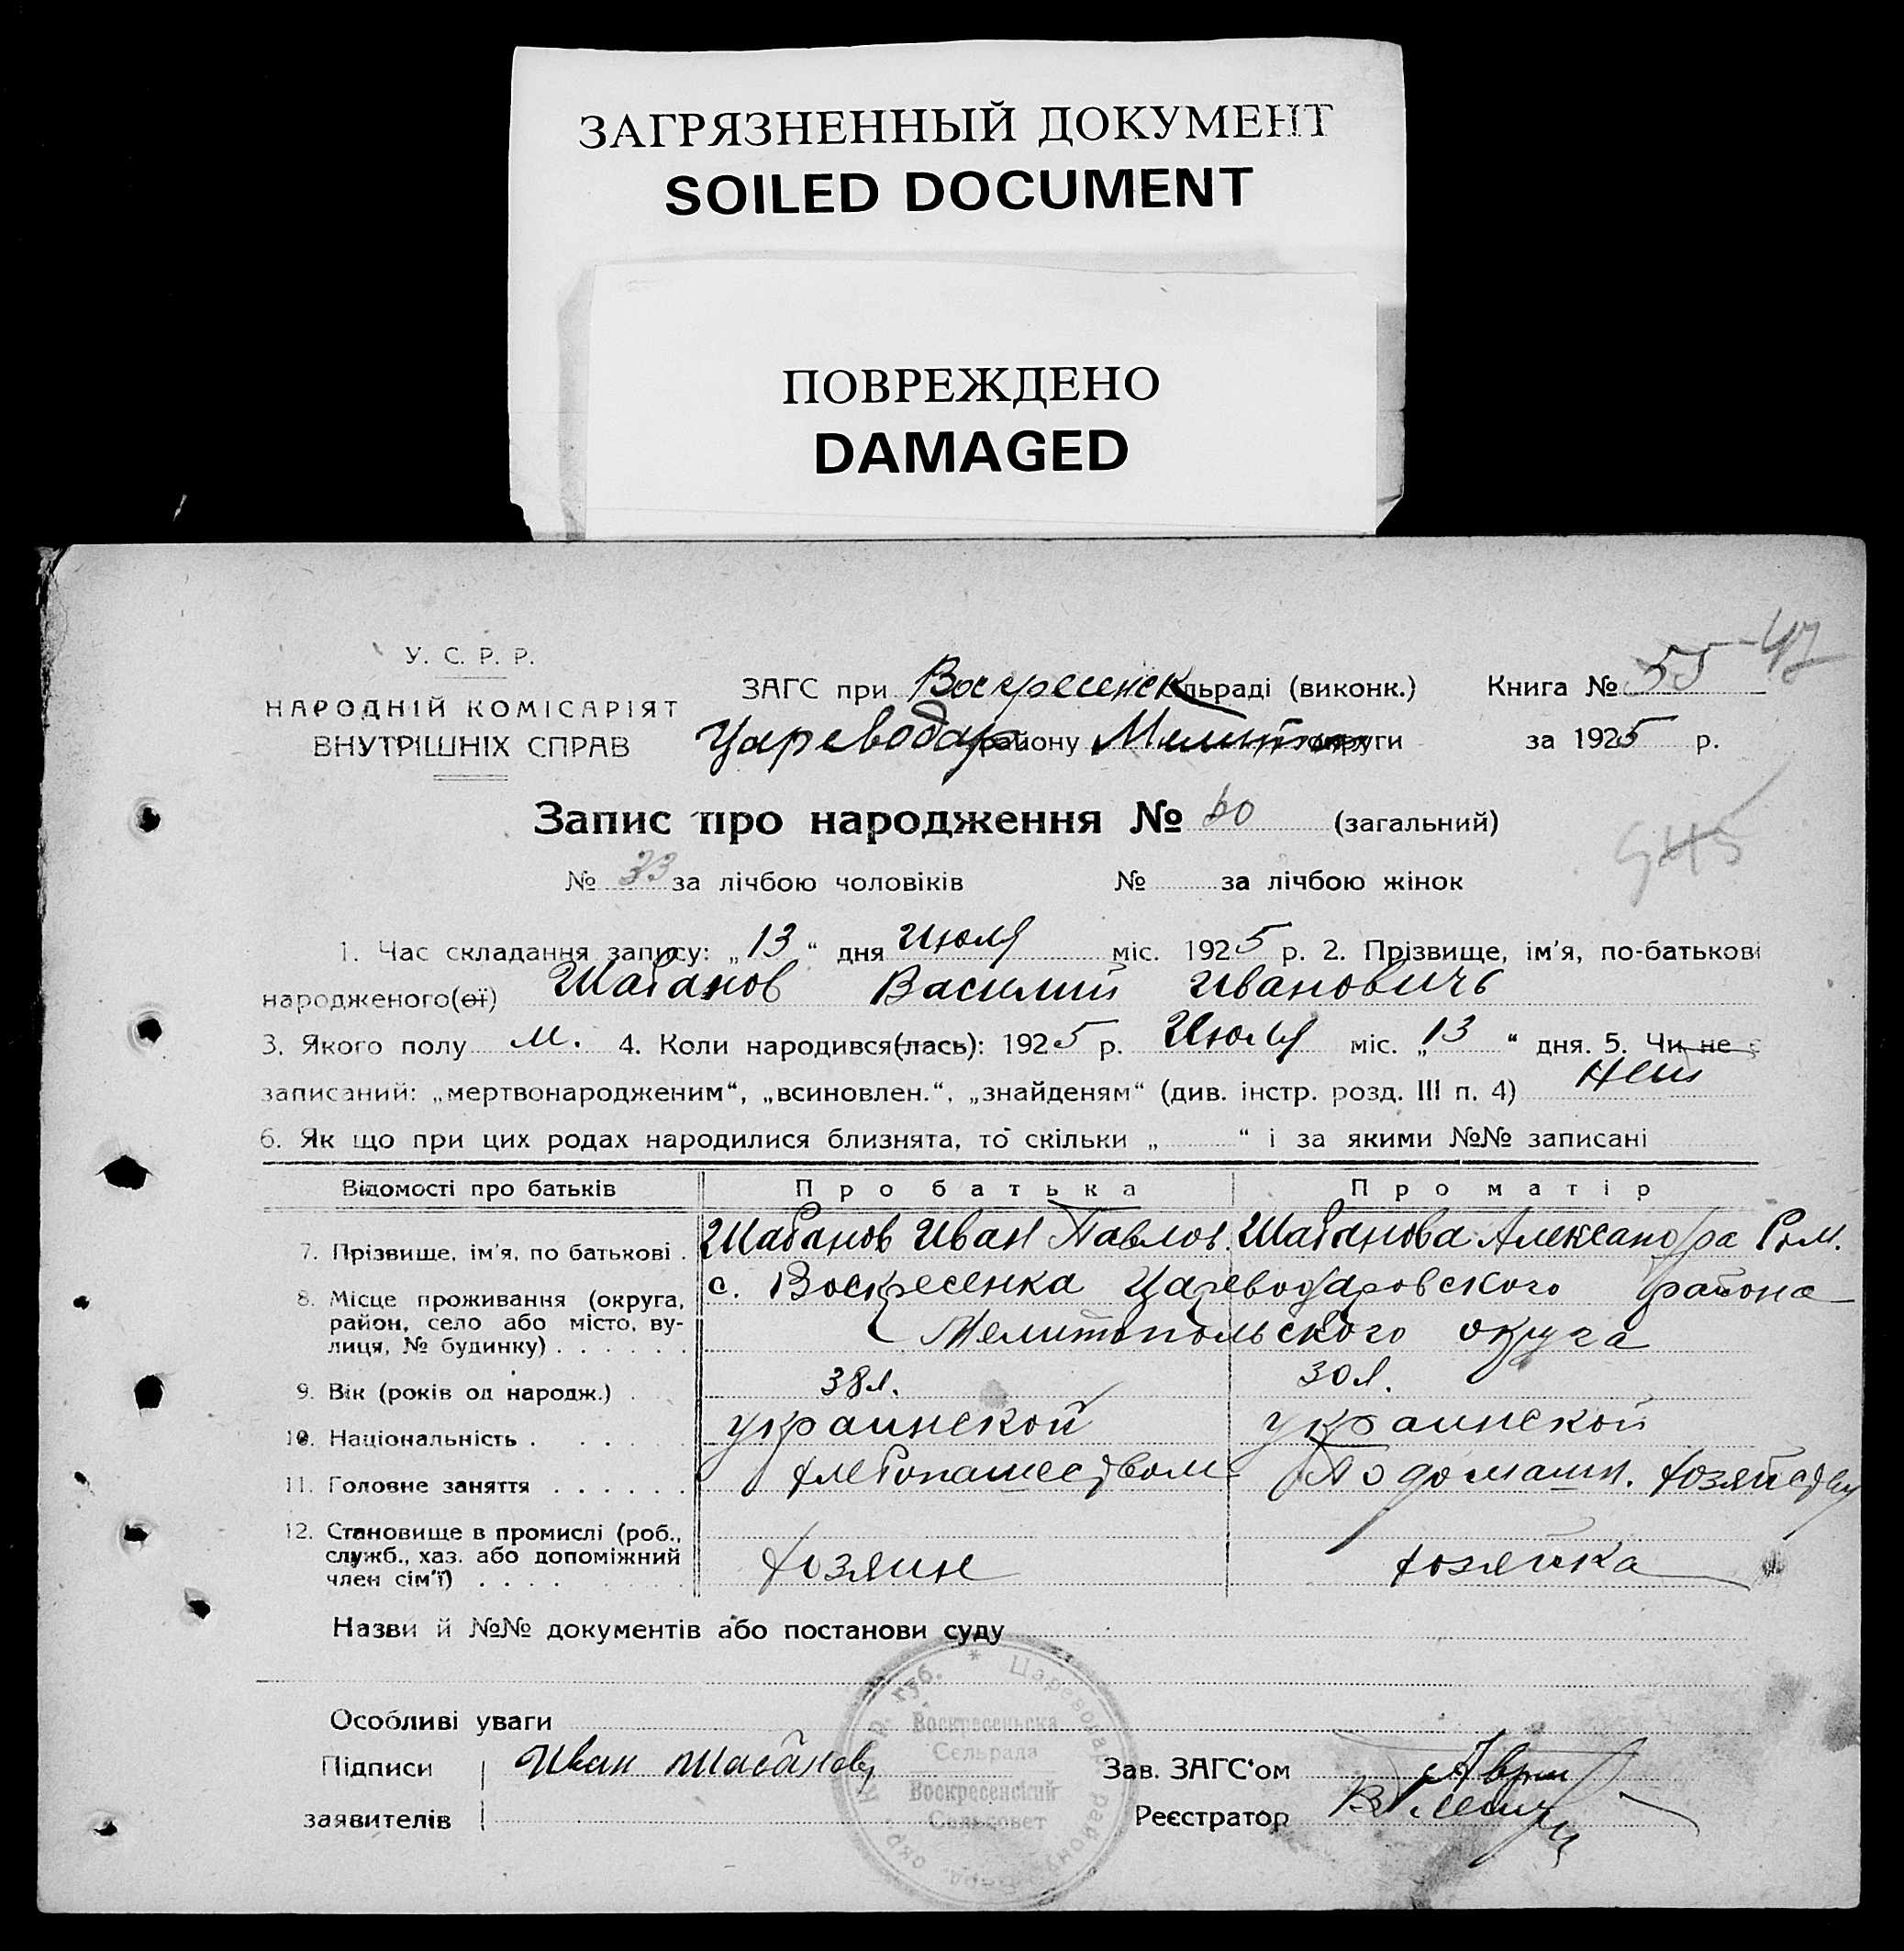 ЗАГРЯЗНЕННЫЙ ДОКУМЕНТ
SOILED DOCUMENT
ПОВРЕЖДЕНО
DAMAGED
У. С. Р. Р.
НАРОДНІЙ КОМІСАРІЯТ
ВНУТРІШНІХ СПРАВ
ЗАГС при Воскресенск льраді (виконк.) Книга № 55 - 47
Цареводар району Мелитоп округи за 1925 р.
Запис про народження № 60 (загальний)
945
№ 33 за лічбою чоловіків № за лічбою жінок
1. Час складання запису: „13“ дня Июля міс. 1925 р. 2. Прізвище, ім'я, по-батькові
народженого(ої) Шабанов Василий Ивановичъ
3. Якого полу м. 4. Коли народився(лась): 1925 р. Июля міс. „13“ дня. 5. Чи не є
записаний: „мертвонародженим“, „всиновлен.“, „знайденям“ (див. інстр. розд. III п. 4) Нет
6. Як що при цих родах народилися близнята, то скільки „ “ і за якими №№ записані
Відомості про батьків Про батька Про матір
7. Прізвище, ім'я, по батькові . Шабанов Иван Павлов. Шабанова Александра Ром.
8. Місце проживання (округа, район, село або місто, вулиця, № будинку) . . . . . . с. Воскресенка Цареводаровского района
Мелитопольского округа
9. Вік (років од народж.) . 38 л. 30 л.
10. Національність . . . . . украинской украинской
11. Головне заняття . . . . . . хлебопашеством По домашн. хозяйству
12. Становище в промислі (роб., служб., хаз. або допоміжний член сім'ї) . . . . хозяин хозяйка
Назви й №№ документів або постанови суду
Особливі уваги
Підписи Иван Шабанов Зав. ЗАГС'ом
заявителів Реєстратор
* Цареводар. району
Воскресеньска
Сельрада
Воскресенский
Сельсовет